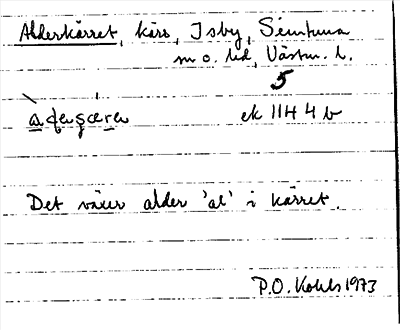 Alderkärret, kärr, Isby, Simtuna
sn o. hd, Västm. l.
5
ek 1144 b
Det växer alder 'al' i kärret.
P.O. Kohls 1973